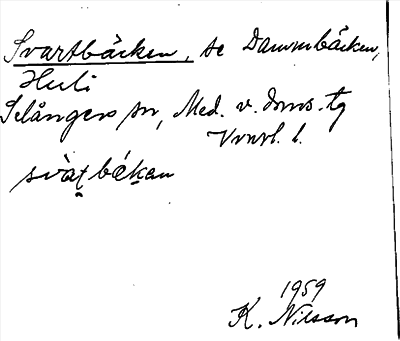 Svartbäcken, se Dammbäcken,
Huli
Selångers sn, Med. v. doms. tg
Vrnrl. l.
svàṭbékan
1959
K. Nilsson